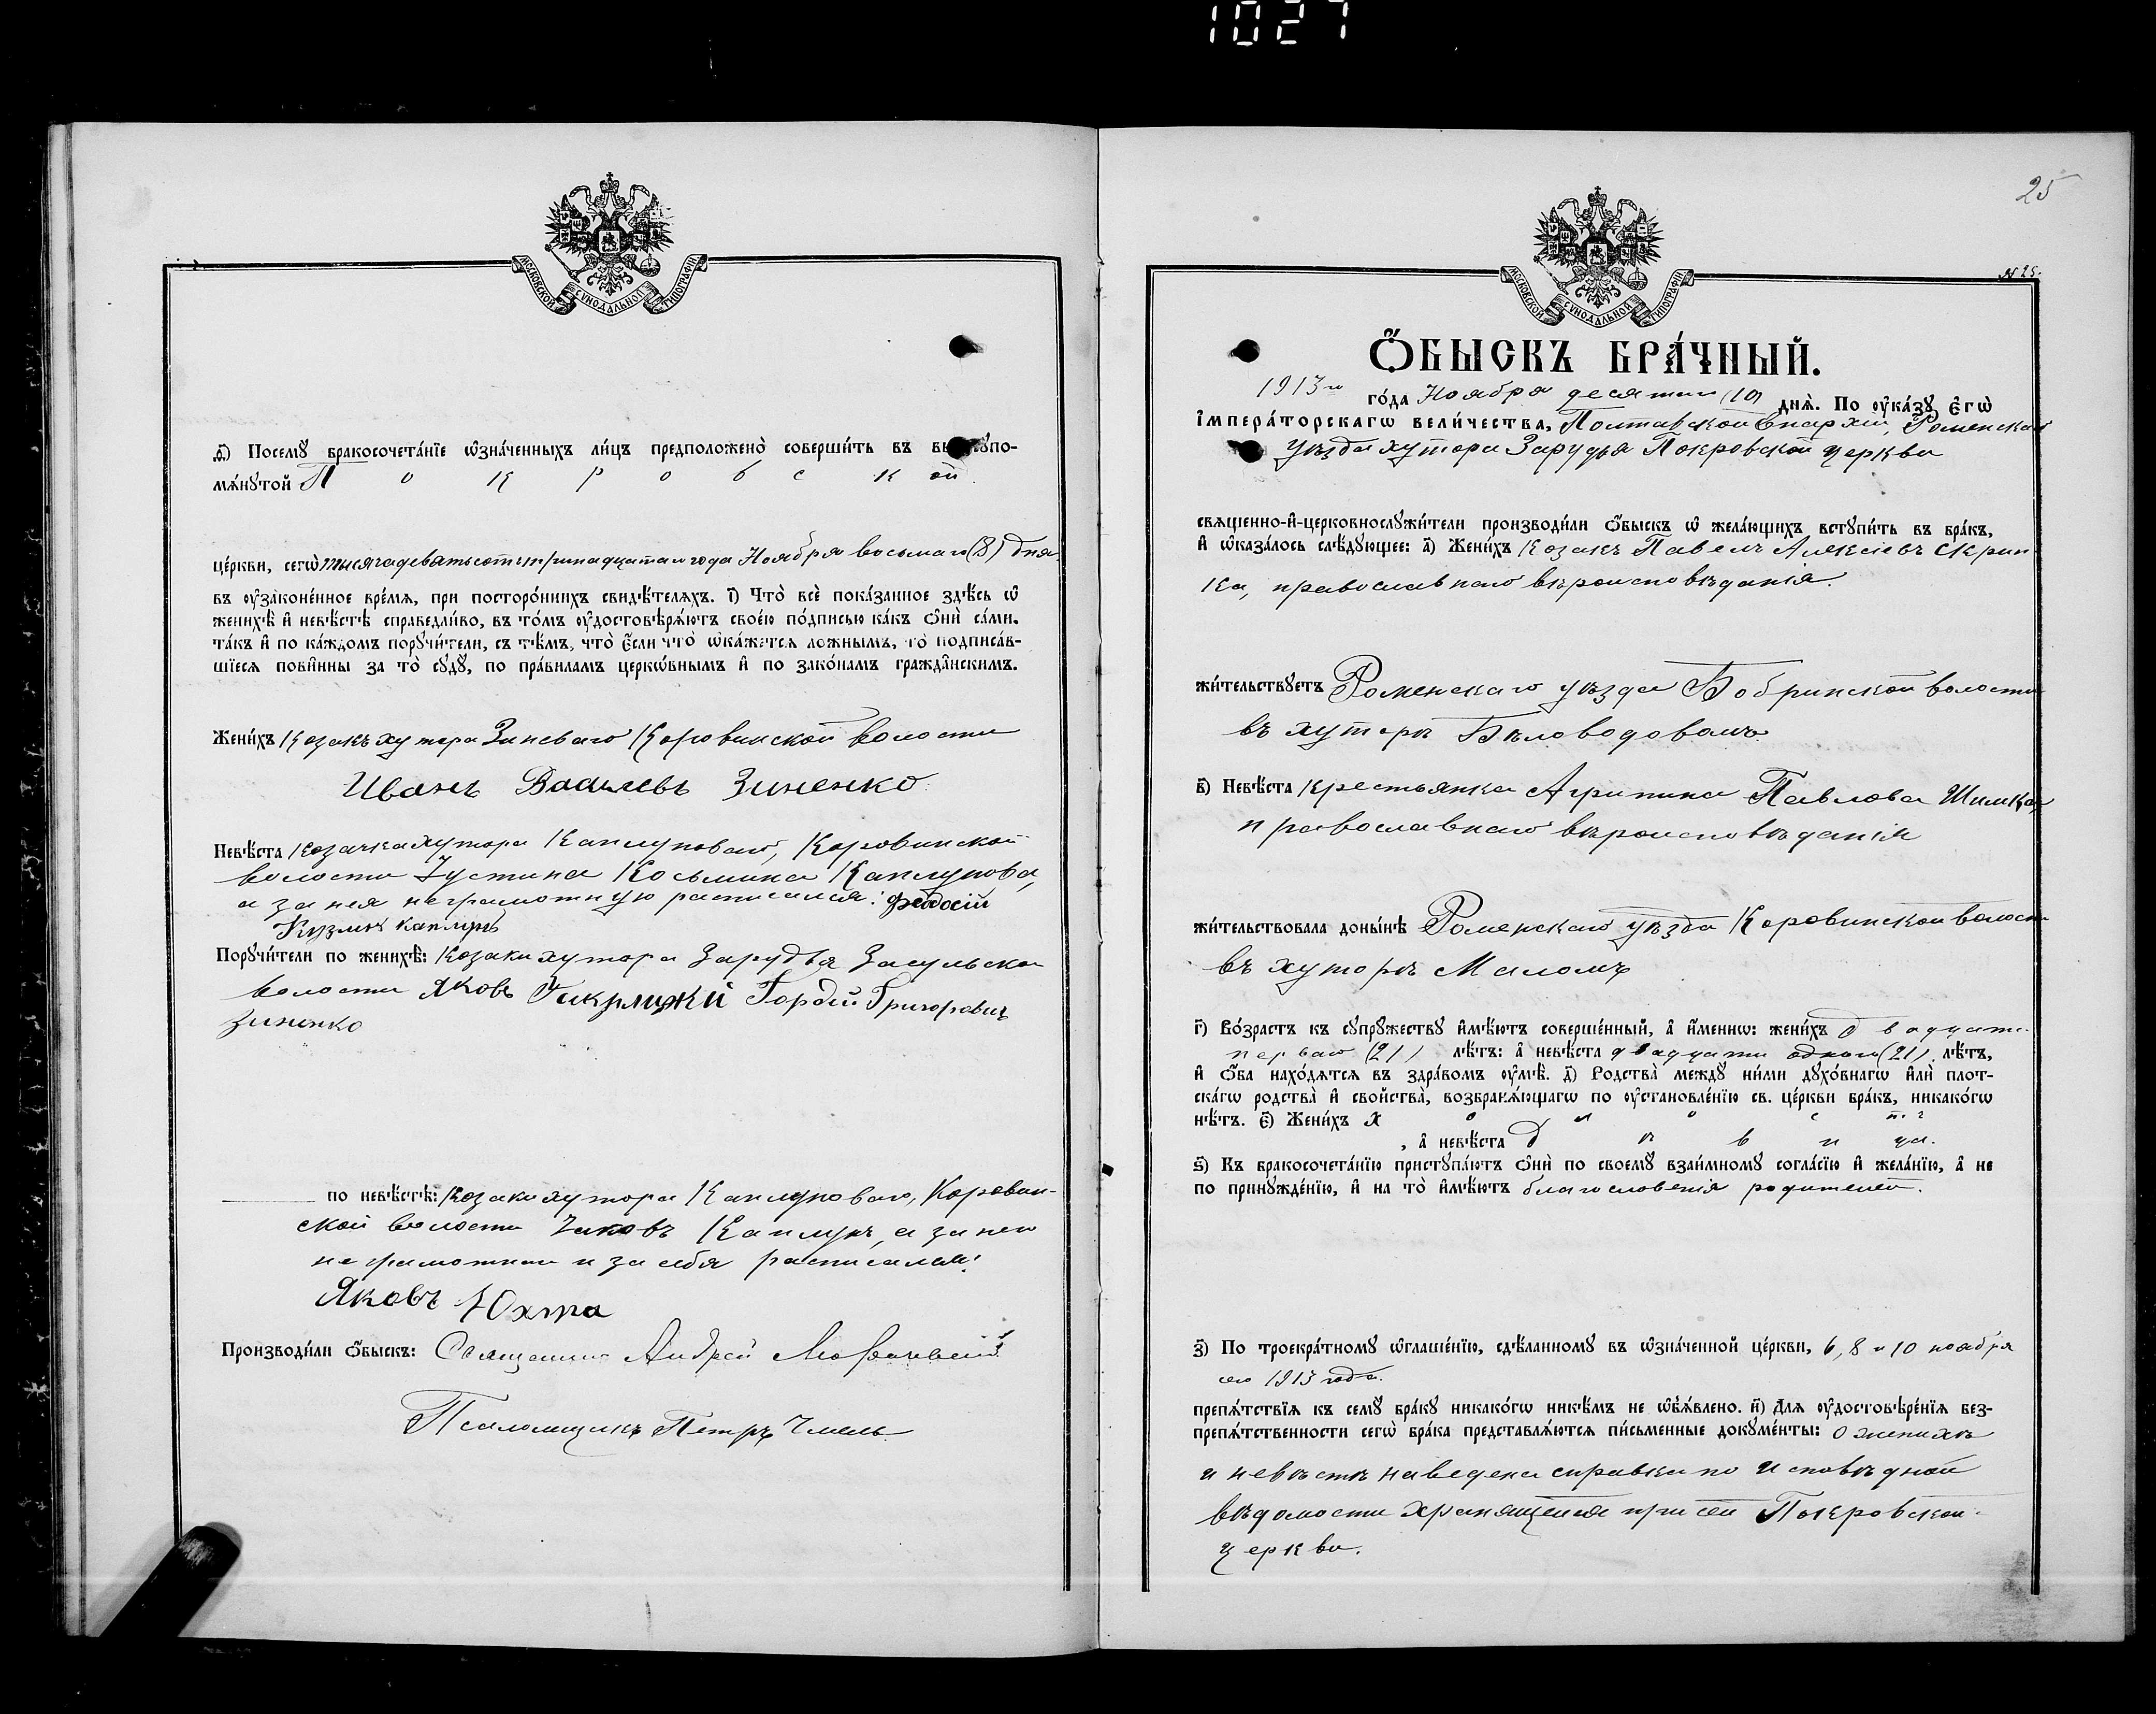 1027
МОСКОВСКОЙ СѴНОДАЛЬНОЙ ТИПОГРАФІИ
ѳ҃) Посемꙋ бракосочета́нїе ѡ҆зна́ченныхъ ли́цъ предположено̀ соверши́ть въ вы
мѧ́нꙋтой Покровской
це́ркви, сегѡ̀ тысяча девятьсотъ тринадцатаго года Ноября восьмаго (8) дня
въ ᲂу҆зако́ненное вре́мѧ, при посторо́ннихъ свидѣ́телѧхъ. і҃) Что̀ всѐ пока́занное здѣ́сь ѡ҆
женихѣ̀ и҆ невѣ́стѣ справедли́во, въ то́мъ ᲂу҆достовѣрѧ́ютъ свое́ю по́дписью ка́къ ѻ҆нѝ са́ми,
та́къ и҆ по ка́ждомъ порꙋчи́тели, съ тѣ́мъ, что̀ є҆́сли что̀ ѡ҆ка́жетсѧ ло́жнымъ, то̀ подписа́в-
шїесѧ пови́нны за то̀ сꙋдꙋ̀, по пра́виламъ церкѡ́внымъ и҆ по зако́намъ гражда́нскимъ.
Жени́хъ Козакъ хутора Зиневаго Коровинской волости
Иванъ Васильевъ Зиненко
Невѣ́ста Козачка хутора Каплуноваго, Коровинской
волости Іустина Косьмина Каплунова,
а за нея неграмотную расписался: Федосій
Кузмичъ Каплунъ
Порꙋчи́тели по женихѣ̀: Козаки хутора Зарудья Засульской
волости Яковъ Гордій Григоровичъ
Зиненко
по невѣ́стѣ: Козаки хутора Каплуноваго, Коровин-
ской волости Іаковъ Каплунъ, а за него
неграмотнаго и за себя расписался:
Яковъ Юхта
Производи́ли ѻ҆́быскъ: Священникъ Андрей
Псаломщикъ Петръ Чмель
25
МОСКОВСКОЙ СѴНОДАЛЬНОЙ ТИПОГРАФІИ
№ 25.
Ѻ҆́БЫСКЪ БРА́ЧНЫЙ.
1913го го́да Ноября десятаго (10) днѧ̀. По ᲂу҆ка́зꙋ Є҆гѡ̀
І҆мпера́торскагѡ вели́чества, Полтавской Епархіи, Роменскаго
уѣзда хутора Зарудья Покровской церкви
свѧще́нно-и҆-церковнослꙋжи́тели производи́ли ѻ҆́быскъ ѡ҆ жела́ющихъ встꙋпи́ть въ бра́къ,
и҆ ѡ҆каза́лось слѣ́дꙋющее: а҃) Жени́хъ Козакъ Павелъ Алексіевъ Скрип-
ка, православнаго вѣроисповѣданія.
жи́тельствꙋетъ Роменскаго уѣзда Бобринской волости
въ хуторѣ Бѣловодовомъ.
в҃) Невѣ́ста Крестьянка Агрипина Павлова
православнаго вѣроисповѣданія
жи́тельствовала доны́нѣ Роменскаго уѣзда Коровинской волости
въ хуторѣ Маломъ
г҃) Во́зрастъ къ сꙋпрꙋ́жествꙋ и҆мѣ́ютъ соверше́нный, а҆ и҆́меннѡ: жени́хъ двадцать
перваго (21) лѣ́тъ: а҆ невѣ́ста двадцати одного (21) лѣ́тъ,
и҆ ѻ҆́ба нахо́дѧтсѧ въ здра́вомъ ᲂу҆мѣ̀. д҃) Родства̀ междꙋ̀ ни́ми дꙋхо́внагѡ и҆лѝ плот-
ска́гѡ родства̀ и҆ сво́йства, возбранѧ́ющагѡ по ᲂу҆становле́нїю св. це́ркви бра́къ, никако́гѡ
нѣ́тъ. є҃) Жени́хъ холостъ
, а҆ невѣ́ста дѣвица.
ѕ҃) Къ бракосочета́нїю пристꙋпа́ютъ ѻ҆нѝ по своемꙋ̀ взаи́мномꙋ согла́сїю и҆ жела́нїю, а҆ не
по принꙋжде́нїю, и҆ на то̀ и҆мѣ́ютъ благословенія родителей.
з҃) По троекра́тномꙋ ѡ҆глаше́нїю, сдѣ́ланномꙋ въ ѡ҆зна́ченной це́ркви, 6, 8 и 10 ноября
сего 1913 года.
препѧ́тствїѧ къ семꙋ̀ бра́кꙋ никако́гѡ никѣ́мъ не ѡ҆б̾ѧ́влено. и҃) Длѧ ᲂу҆достовѣре́нїѧ без-
препѧ́тственности сегѡ̀ бра́ка представлѧ́ютсѧ пи́сьменные докꙋме́нты: о женихѣ
и невѣстѣ наведена справка по исповѣдной
вѣдомости хранящейся при сей Покровской
церкви.